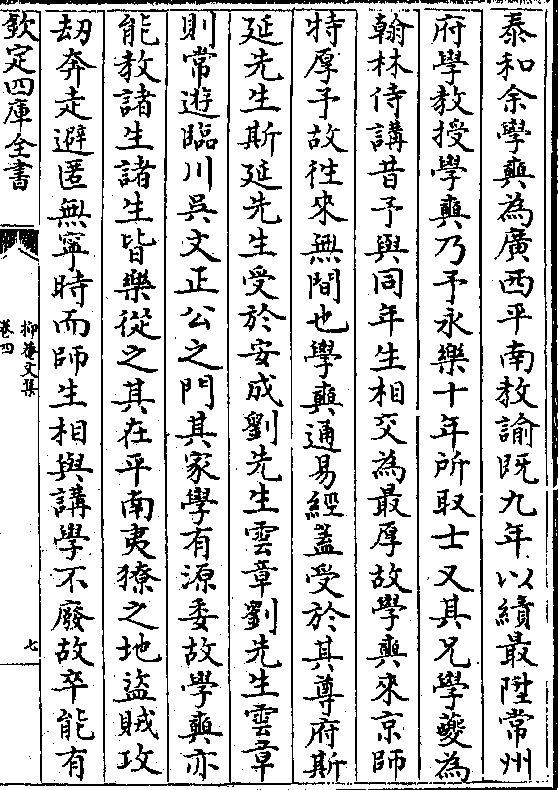 泰和余學夔為廣西平南教諭既九年以績最陞常州
府學教授學夔乃予永樂十年所取士又其兄學夔為
翰林侍講昔予與同年生相交為最厚故學夔來京師
特厚予故徃來無間也學夔通易經蓋受於其尊府斯
延先生斯延先生受於安成劉先生雲章劉先生雲章
則常遊臨川吳文正公之門其家學有源委故學夔亦
能教諸生諸生皆樂從之其在平南夷獠之地盜賊攻
刼奔走避匿無寧時而師生相與講學不廢故卒能有
欽定四庫全書
抑菴文集
卷四
七